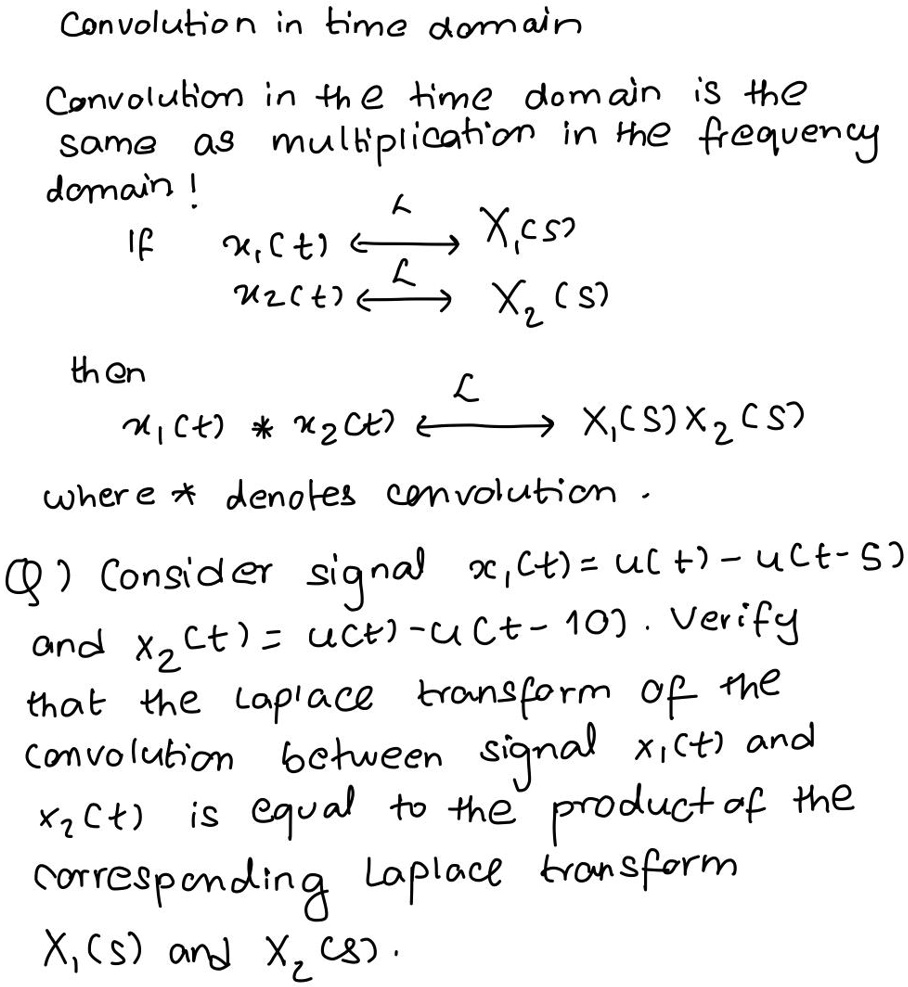 Convolution in time domain
Convolution in the time domain is the
same as multiplication in the frequency
domain!
If x₁(t) ⟷ X₁(s)
ℒ
x₂(t) ⟷ X₂(s)
ℒ
then
ℒ
x₁(t) * x₂(t) ⟷ X₁(s)X₂(s)
where * denotes convolution.
Q) Consider signal x₁(t) = u(t) - u(t-5)
and x₂(t) = u(t) - u(t-10). Verify
that the Laplace transform of the
convolution between signal x₁(t) and
x₂(t) is equal to the product of the
corresponding Laplace transform
X₁(s) and X₂(s).